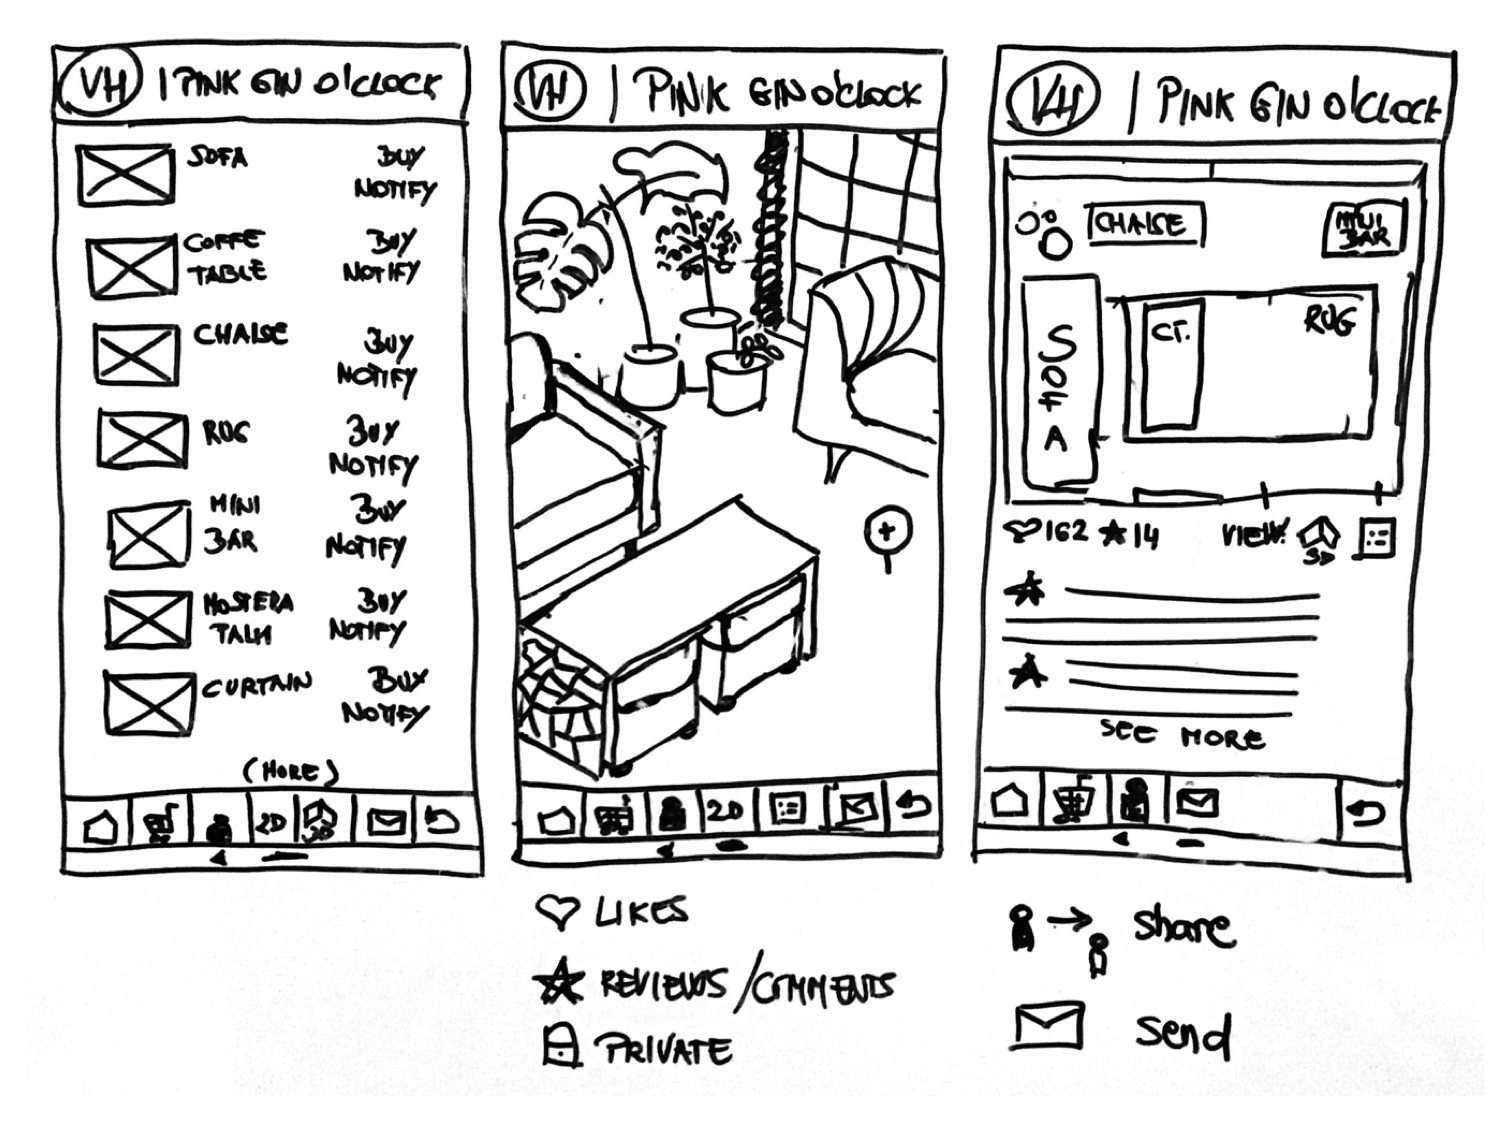 VH | PINK GIN O'CLOCK
SOFA BUY
NOTIFY
COFFE BUY
TABLE NOTIFY
CHAISE BUY
NOTIFY
RUG BUY
NOTIFY
MINI BUY
BAR NOTIFY
MOSTERA BUY
TALM NOTIFY
CURTAIN BUY
NOTIFY
(MORE)
2D 3D
VH | PINK GIN O'CLOCK
+
2D
LIKES
REVIEWS/COMMENTS
PRIVATE
VH | PINK GIN O'CLOCK
CHAISE
MINI
BAR
SOFA
CT.
RUG
162 14 VIEW:
3D
SEE MORE
share
send